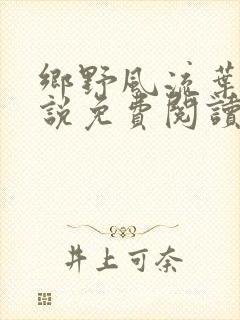 鄉野風流葉
說免費閱讀
井上可奈